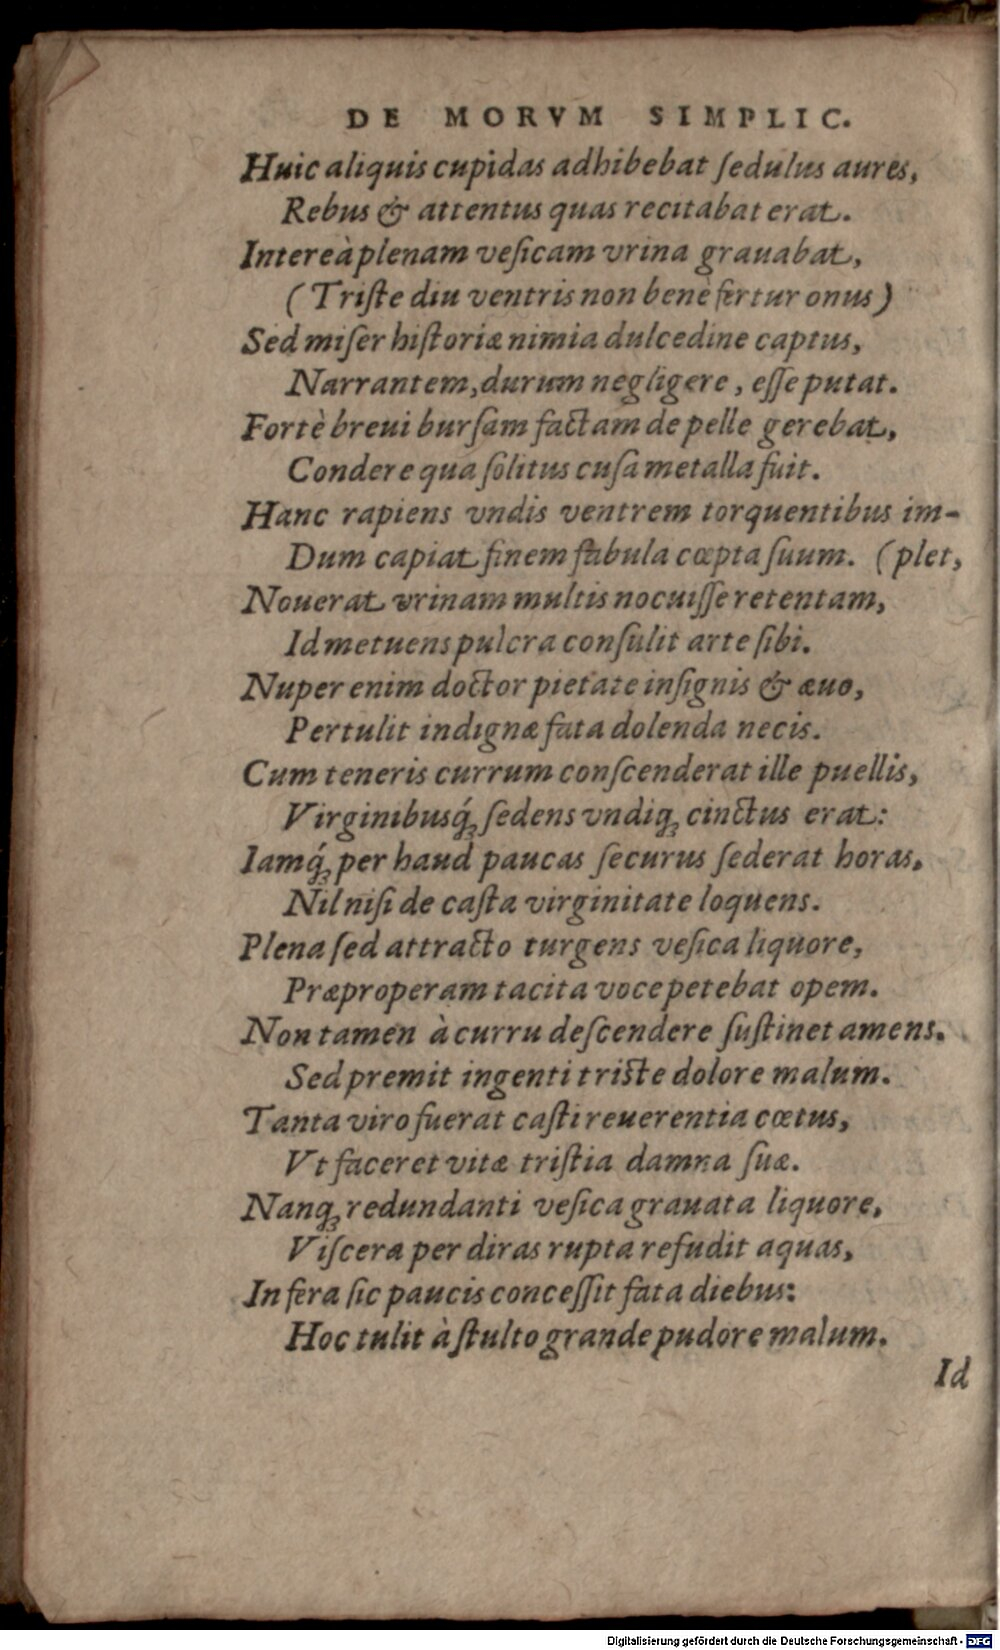 DE MORVM SIMPLIC.
Huic aliquis cupidas adhibebat ſedulus aures,
Rebus & attentus quas recitabat erat.
Intereà plenam veſicam vrina grauabat,
(Triſte diu ventris non benè fertur onus)
Sed miſer hiſtoriæ nimia dulcedine captus,
Narrantem, durum negligere, eſſe putat.
Fortè breui burſam factam de pelle gerebat,
Condere qua ſolitus cuſa metalla fuit.
Hanc rapiens vndis ventrem torquentibus im-
Dum capiat finem fabula cœpta ſuum. (plet,
Nouerat vrinam multis nocuiſſe retentam,
Id metuens pulcra conſulit arte ſibi.
Nuper enim doctor pietate inſignis & æuo,
Pertulit indignæ fata dolenda necis.
Cum teneris currum conſcenderat ille puellis,
Virginibusq́; ſedens vndiq; cinctus erat:
Iamq́; per haud paucas ſecurus ſederat horas,
Nil niſi de caſta virginitate loquens.
Plena ſed attracto turgens veſica liquore,
Præproperam tacita voce petebat opem.
Non tamen à curru deſcendere ſuſtinet amens.
Sed premit ingenti triſte dolore malum.
Tanta viro fuerat caſti reuerentia cœtus,
Vt faceret vitæ triſtia damna ſuæ.
Nanq; redundanti veſica grauata liquore,
Viſcera per diras rupta refudit aquas,
Infera ſic paucis conceſſit fata diebus:
Hoc tulit à ſtulto grande pudore malum.
Id
Digitalisierung gefördert durch die Deutsche Forschungsgemeinschaft - DFG